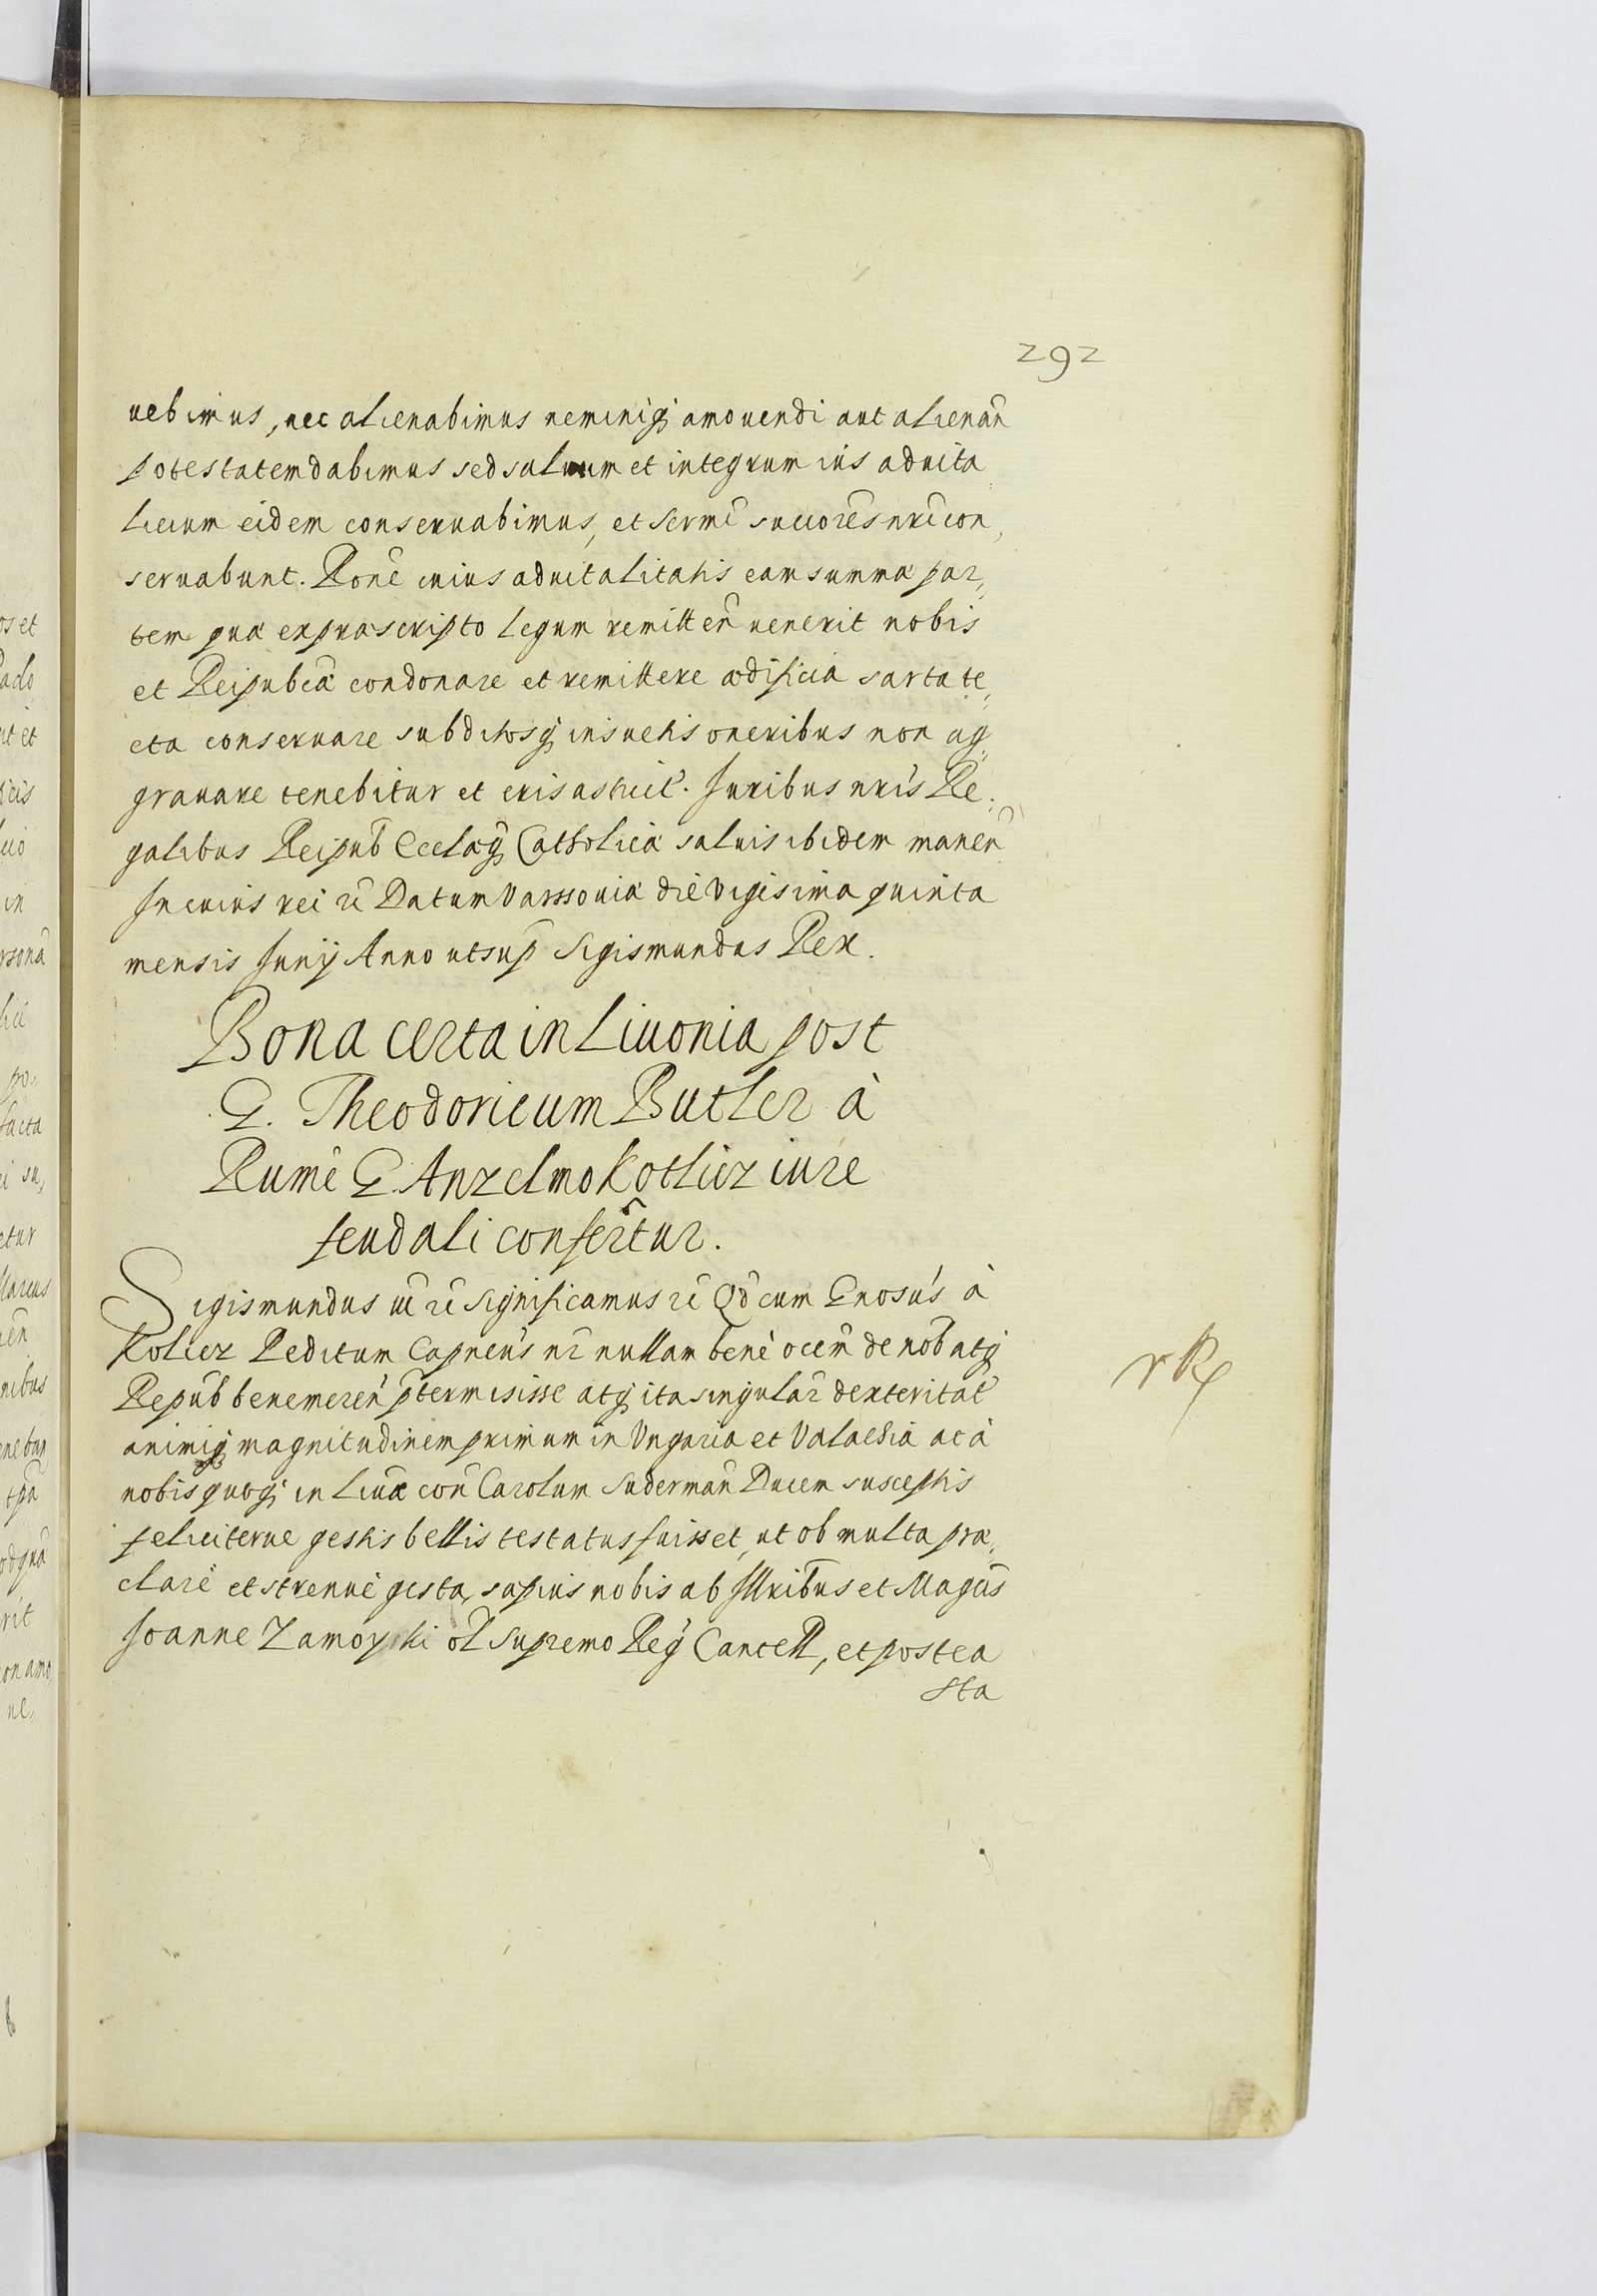 292
uebimus, nec alienabimus neminiq; amouendi aut alienan̄
potestatem dabimus sed saluum et integrum ius aduita
licium eidem conseruabimus, et Sermi succores nri con,
seruabunt. Rone cuius aduitalitatis eam summæ par,
tem quæ ex præscripto legum remitten̄ uenerit nobis
et Reipubcæ condonare et remittere ædificia sarta te,
cta conseruare subditosq; insuetis oneribus non ag,
grauare tenebitur et erit astrict. Iuribus nris Re,
galibus Reipub Ecclæq; Catholicæ saluis ibidem manen̄
In cuius rei &c Datum Varssouiæ die Vigesima quinta
mensis Iunij Anno ut sup Sigismundus Rex.
Bona certa in Liuonia post
G. Theodoricum Butler à
Rume G. Anzelmo Kotlicz iure
feudali confertur.
Sigismundus &c &c Significamus &c Qd cum Gnosus à
Kotlicz Peditum Capneus nr nullam bene ocem de nob atq;
Repub benemeren p̄termisisse atq; ita singular dexteritat
animiq; magnitudinem primum in Vngaria et Valachia ac à
nobis quoq; in Liuoc con Carolum Suderman Ducem susceptis
feliciterue gestis bellis testatus fuisset, ut ob multa præ,
clarè et strenuè gesta, sæpius nobis ab Illribus et Magcis
Ioanne Zamoyski ol Supremo Reg Cancell, et postea
Sta